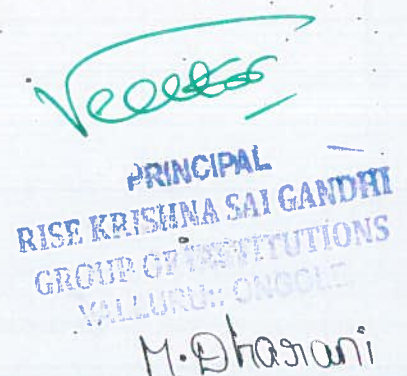 PRINCIPAL
RISE KRISHNA SAI GANDHI
GROUP OF INSTITUTIONS
VALLURU:: ONGOLE
M. Dharani